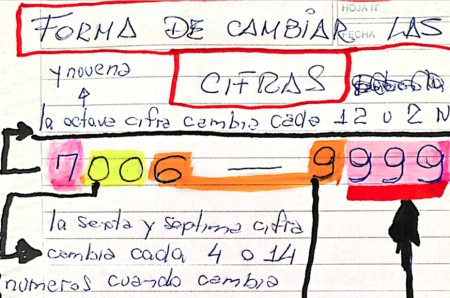 HOJA Nº
FECHA
FORMA DE CAMBIAR LAS
CIFRAS
y novena
la octava cifra cambia cada 12 o 2 N
7006 — 9999
la sexta y septima cifra
cambia cada 4 o 14
numeros cuando cambia